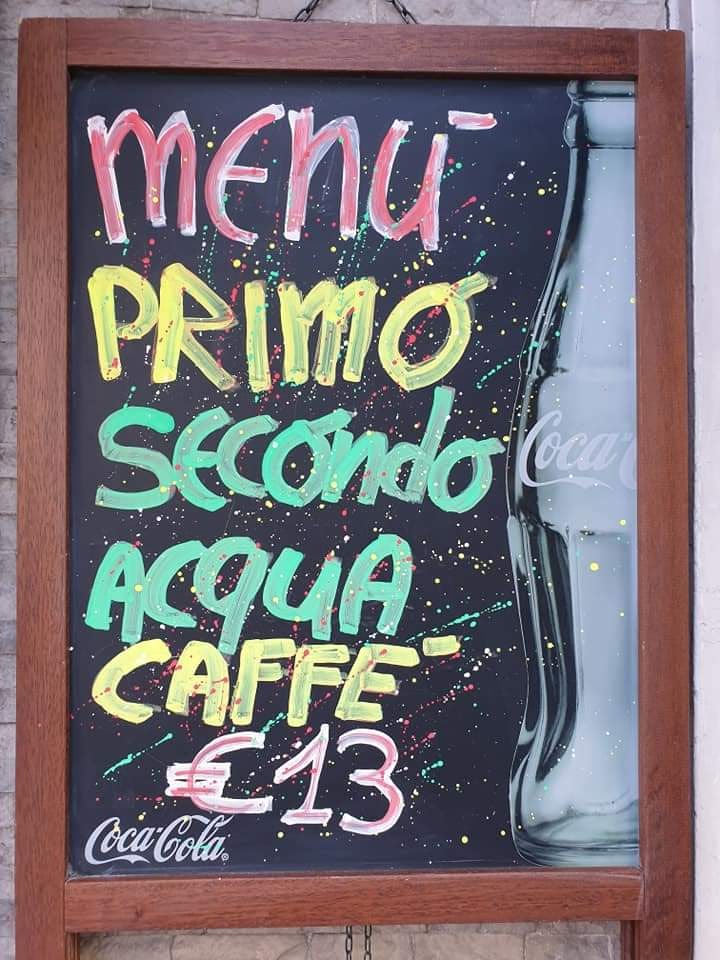 MENÚ
PRIMO
SECONDO
ACQUA
CAFFÈ
€13
Coca-Cola
Coca-C